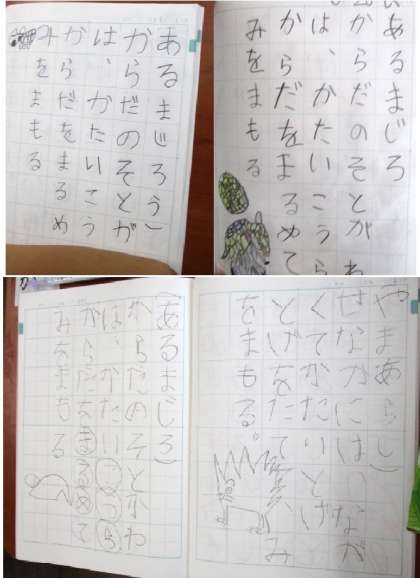 あるまじろう)
からだのそとが
は、かたいこう
から、だをまるめ
みをまもる
あるまじろ
からだのそとがわ
は、かたいこうら
からだをまるめて
みをまもる
やまあらし)
せなかにはなが
くてかたいとげ
とげをたてて、み
をまもる。
(あるまじろ)
からだのそとがわ
は、かたいこうら
からだをまるめて
みをまもる